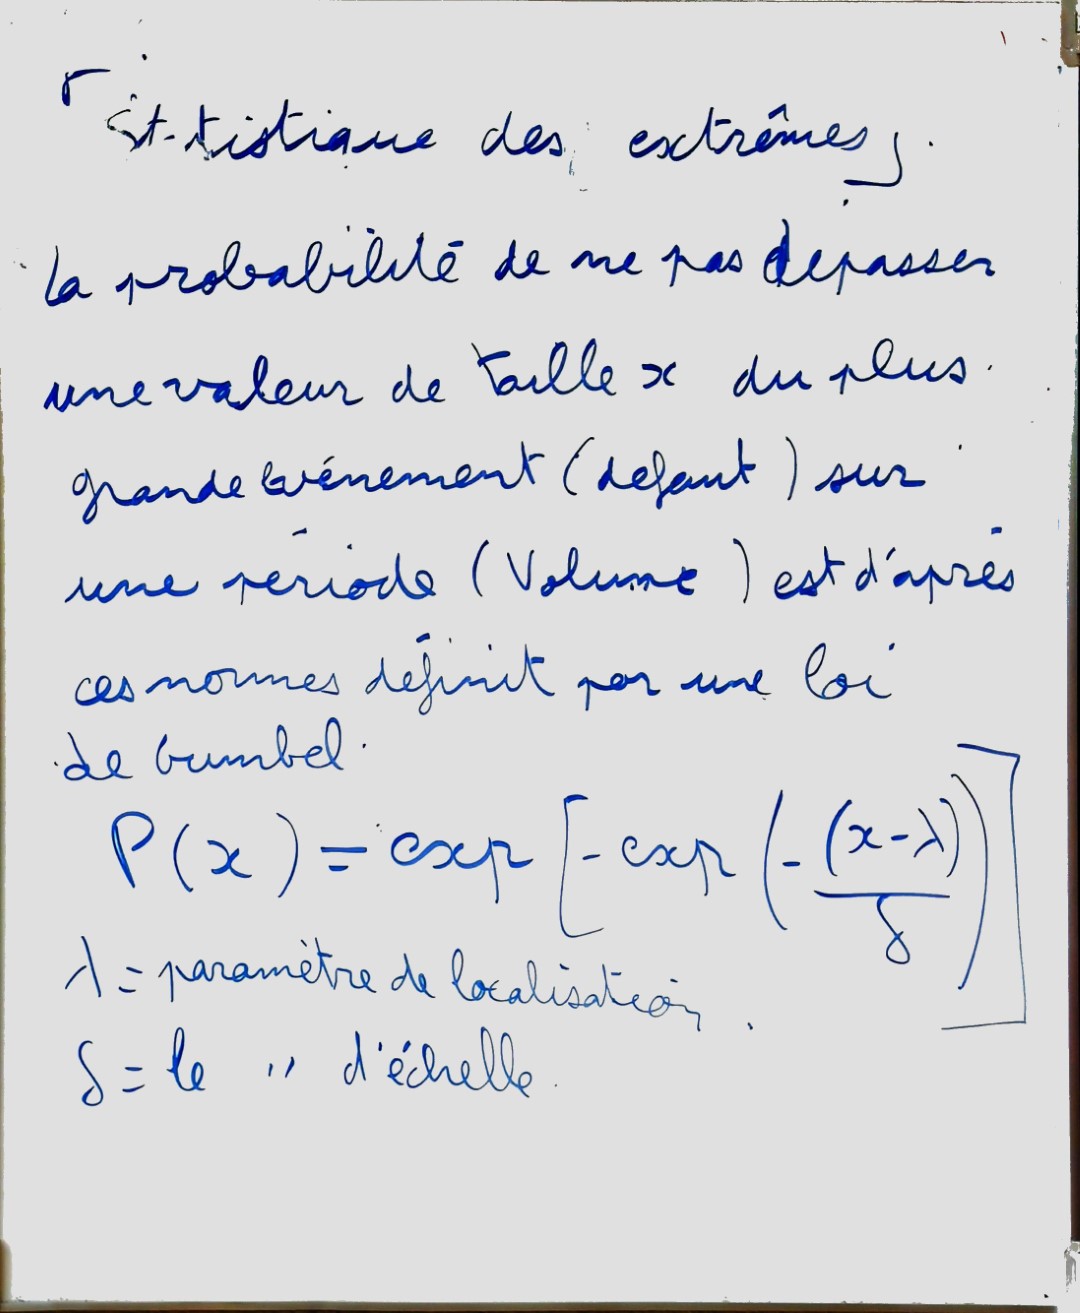 ⌜St-tistique des extrêmes⌟.
La probabilité de ne pas depasser
une valeur de taille x du plus
grande évenement (defaut) sur
une période (Volume) est d'aprés
ces normes définit par une loi
de Gumbel.
P(x) = exp [- exp (- (x-λ)/δ)]
λ = paramètre de localisation.
δ = le " d'échelle.